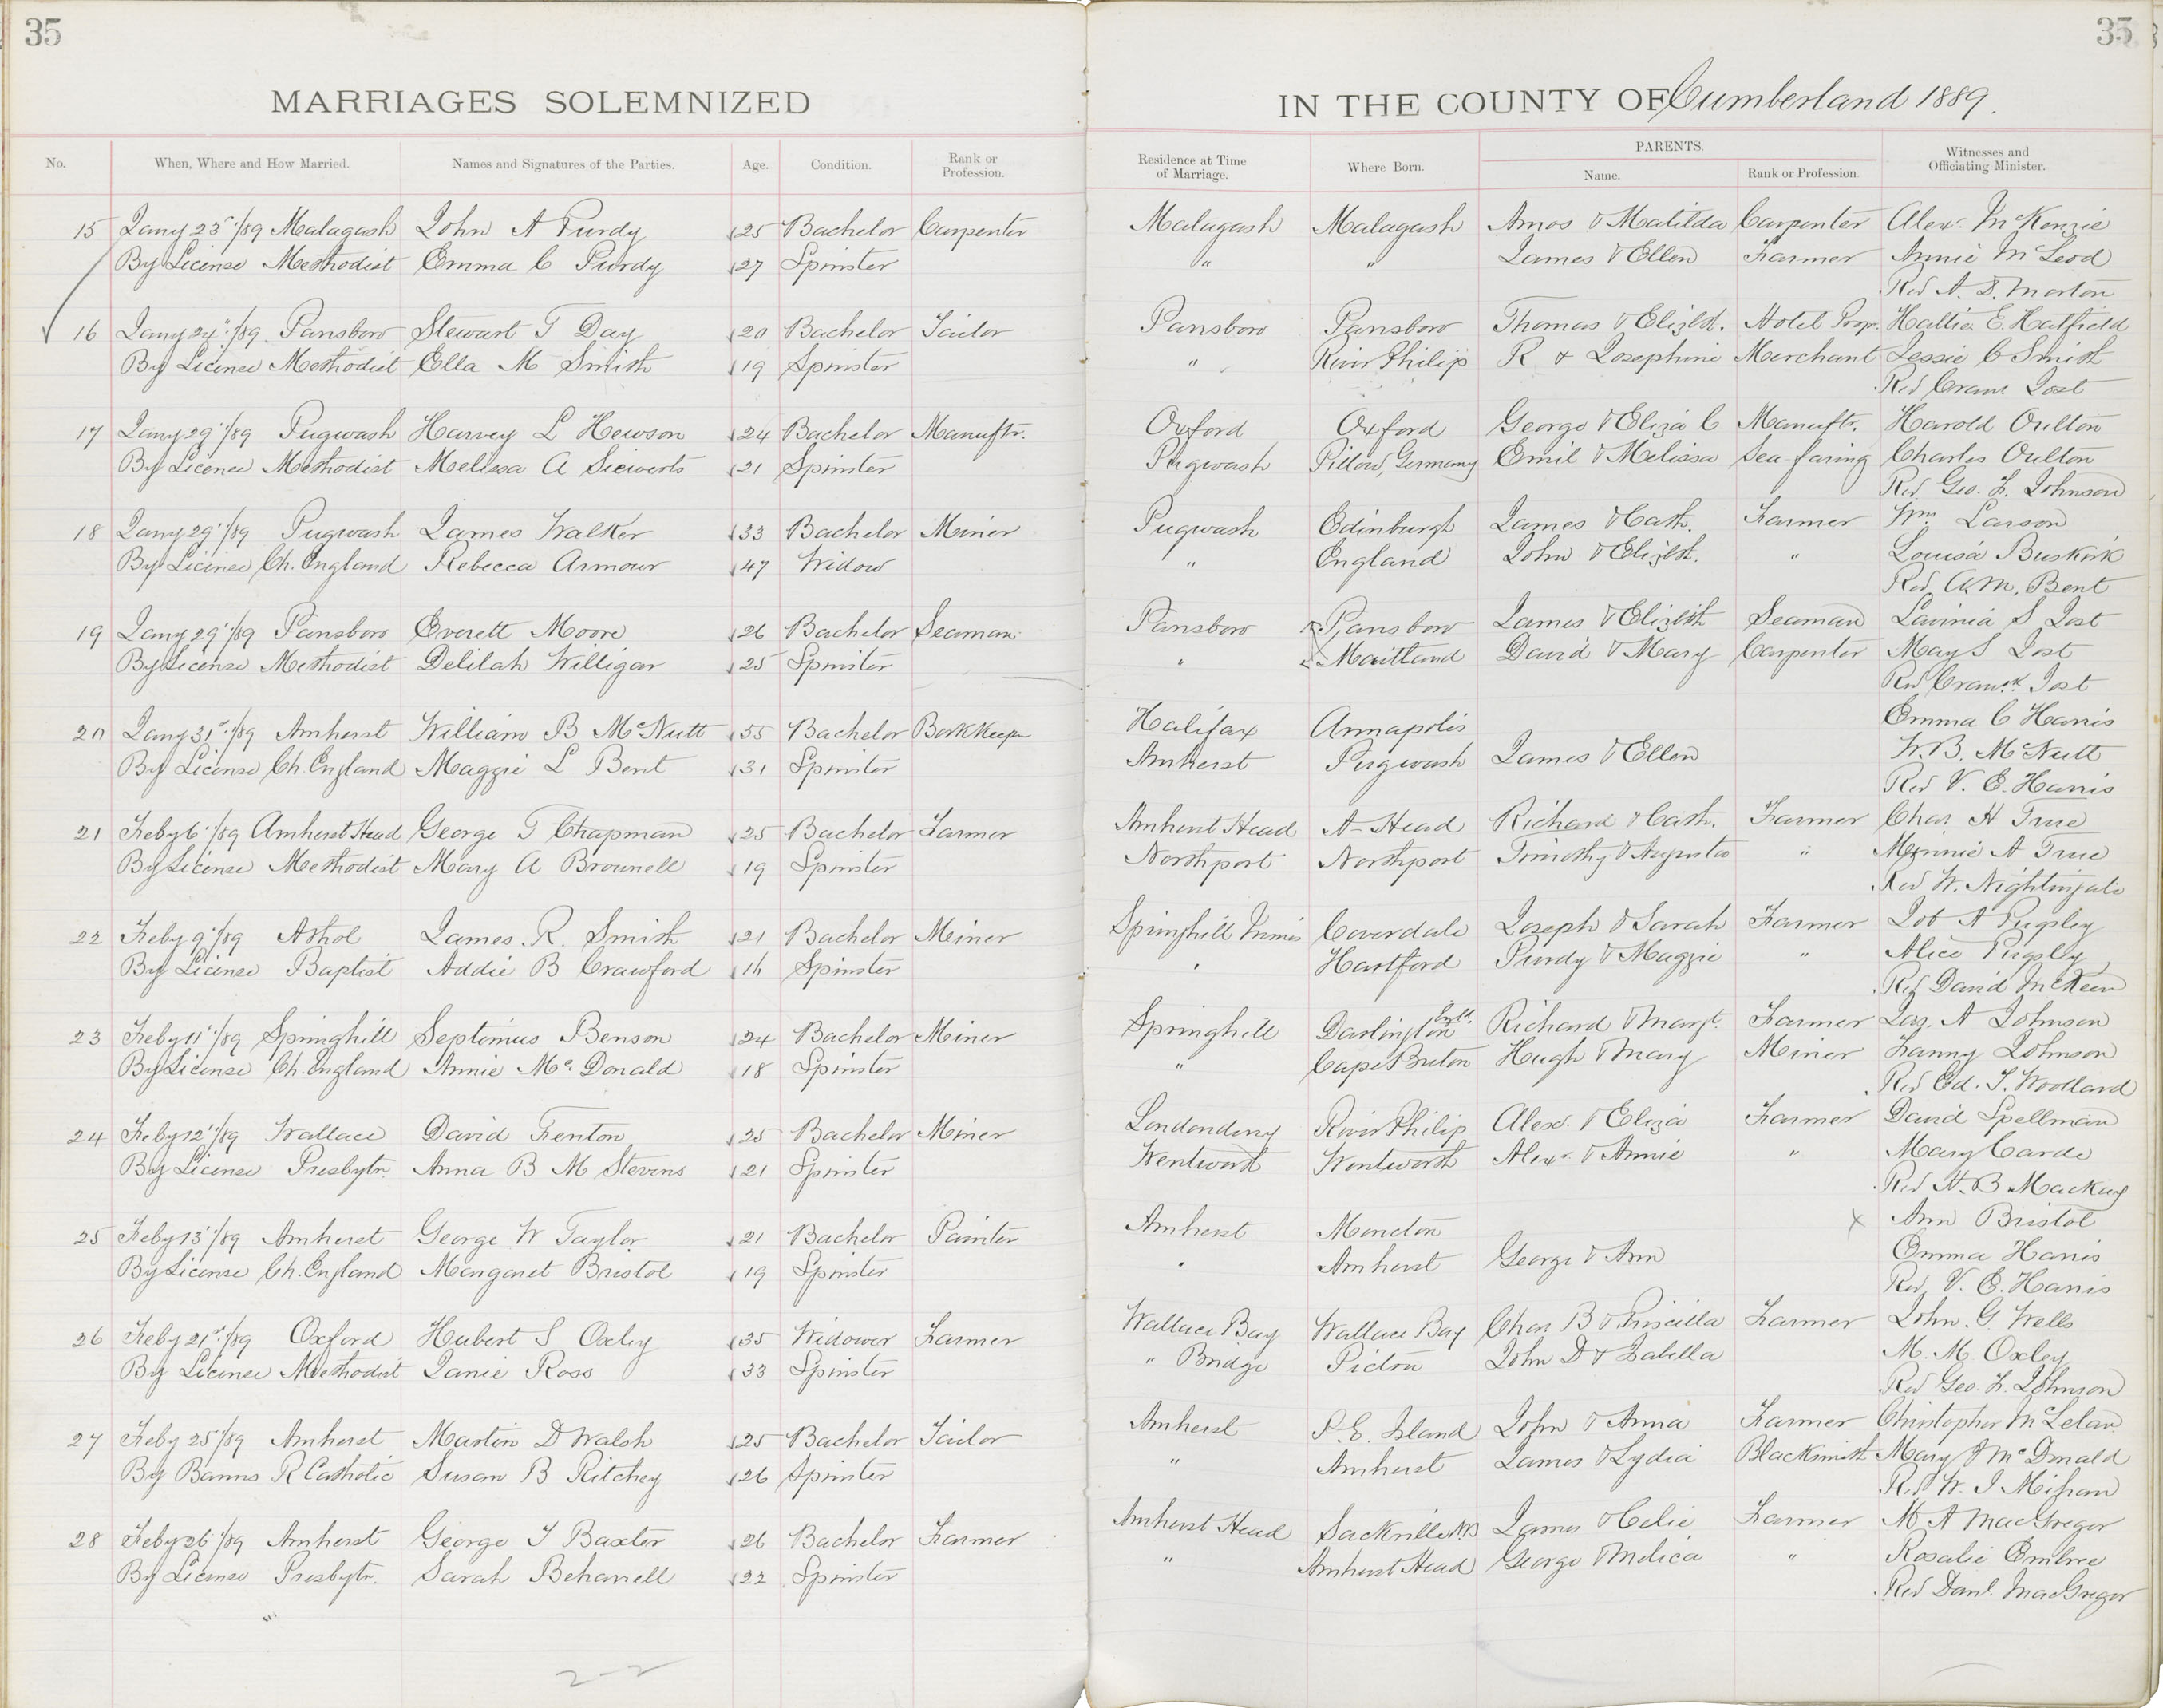 35
35
MARRIAGES SOLEMNIZED
IN THE COUNTY OF Cumberland 1889.
No. When, Where and How Married. Names and Signatures of the Parties. Age. Condition. Rank or Profession. Residence at Time of Marriage. Where Born. PARENTS. Name. Rank or Profession. Witnesses and Officiating Minister.
15 Jany 23d/89 Malagash John A Purdy 25 Bachelor Carpenter Malagash Malagash Amos & Matilda Carpenter Alexr. McKenzie
By License Methodist Emma C Purdy 27 Spinster " " James & Ellen Farmer Annie McLeod
Rev A. D. Morton
16 Jany 24"/89 Parrsboro Stewart T Day 20 Bachelor Tailor Parrsboro Parrsboro Thomas & Elizbt. Hotel Propr. Hallie E. Hatfield
By License Methodist Ella M Smith 19 Spinster " River Philip R & Josephine Merchant Jessie C Smith
Rev Craw. Jost
17 Jany 29"/89 Pugwash Harvey L Hewson 24 Bachelor Manuftr. Oxford Oxford George & Eliza C Manuftr. Harold Oulton
By License Methodist Melissa A Siewerts 21 Spinster Pugwash Pillow, Germany Emil & Melissa Sea faring Charles Oulton
Rev. Geo. F. Johnson
18 Jany 29"/89 Pugwash James Walker 33 Bachelor Miner Pugwash Edinburgh James & Cath. Farmer Wm Larson
By License Ch. England Rebecca Armour 47 Widow " England John & Elizbt. " Louisa Buskirk
Rev A. M. Bent
19 Jany 29"/89 Parrsboro Everett Moore 26 Bachelor Seaman Parrsboro Parrsboro James & Elizbth Seaman Lavinia S Jost
By License Methodist Delilah Willigar 25 Spinster " Maitland David & Mary Carpenter May S Jost
Rev Craw. Jost
20 Jany 31st/89 Amherst William B McNutt 55 Bachelor BookKeeper Halifax Annapolis Emma C Harris
By License Ch. England Maggie L Bent 31 Spinster Amherst Pugwash James & Ellen W. B. McNutt
Rev V. E. Harris
21 Feby 6"/89 Amherst Head George T Chapman 25 Bachelor Farmer Amherst Head A- Head Richard & Cath. Farmer Chas. H True
By License Methodist Mary A Brownell 19 Spinster Northport Northport Timothy & Augusta " Minnie A True
Rev W. Nightingale
22 Feby 9"/89 Athol James. R. Smith 21 Bachelor Miner Springhill Mines Coverdale Joseph & Sarah Farmer Job A Pugsley
By License Baptist Addie B Crawford 16 Spinster " Hartford Purdy & Maggie " Alice Pugsley
Rev David McKeen
23 Feby 11"/89 Springhill Septimus Benson 24 Bachelor Miner Springhill Darlington Engld. Richard & Margt. Farmer Jas. A Johnson
By License Ch. England Annie McDonald 18 Spinster " Cape Breton Hugh & Mary Miner Fanny Johnson
Rev Ed. T. Woollard
24 Feby 12"/89 Wallace David Fenton 25 Bachelor Miner Londonderry River Philip Alexr. & Eliza Farmer David Spellman
By License Presbytr. Anna B M Stevens 21 Spinster Wentworth Wentworth Alexr. & Annie " Mary Carde
Rev H. B Mackay
25 Feby 13"/89 Amherst George W Taylor 21 Bachelor Painter Amherst Moncton x Ann Bristol
By License Ch. England Margaret Bristol 19 Spinster " Amherst George & Ann Emma Harris
Rev. V. E. Harris
26 Feby 21st/89 Oxford Hubert S Oxley 35 Widower Farmer Wallace Bay Wallace Bay Chas B & Priscilla Farmer John. G Wells
By License Methodist Janie Ross 33 Spinster " Bridge Pictou John D & Isabella M. M Oxley
Rev Geo. F. Johnson
27 Feby 25/89 Amherst Martin D Walsh 25 Bachelor Tailor Amherst P. E. Island John & Anna Farmer Christopher McLelan
By Banns R Catholic Susan B Ritchey 26 Spinster " Amherst James & Lydia Blacksmith Mary J McDonald
Rev W. J Mihan
28 Feby 26"/89 Amherst George T Baxter 26 Bachelor Farmer Amherst Head Sackville NB James & Celie Farmer M A MacGregor
By License Presbytr. Sarah Beharrell 22 Spinster " Amherst Head George & Melica " Rosalie Embree
Rev Danl. MacGregor
2-2